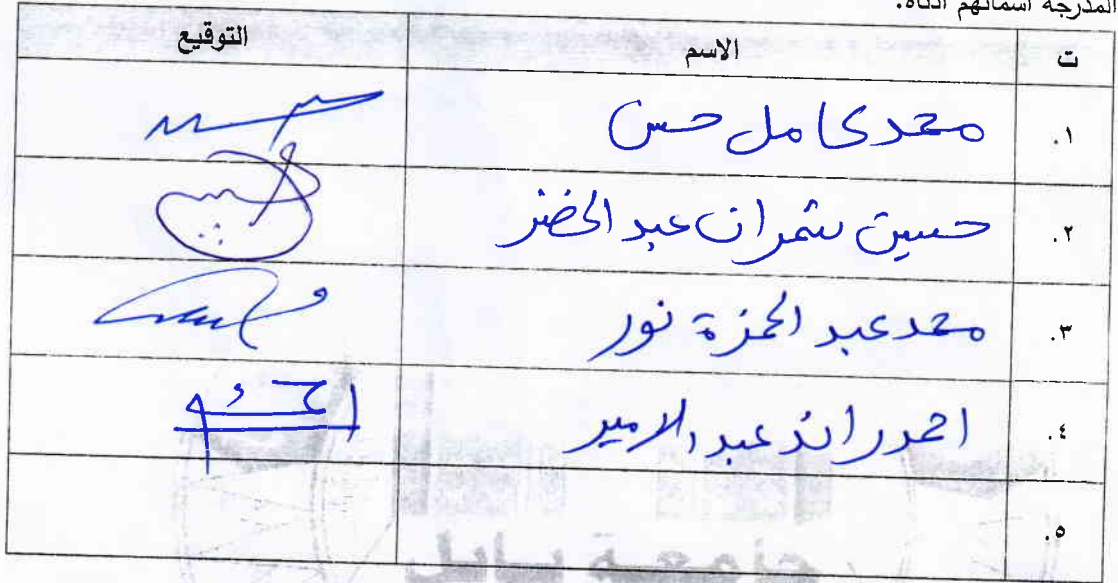 المدرجة اسمائهم ادناه.
ت الاسم التوقيع
١. محمد كامل حسن
٢. حسين شمران عبد الخضر
٣. محمد عبد الحمزة نور
٤. احمد رائد عبد الامير
٥.
جامعة بابل